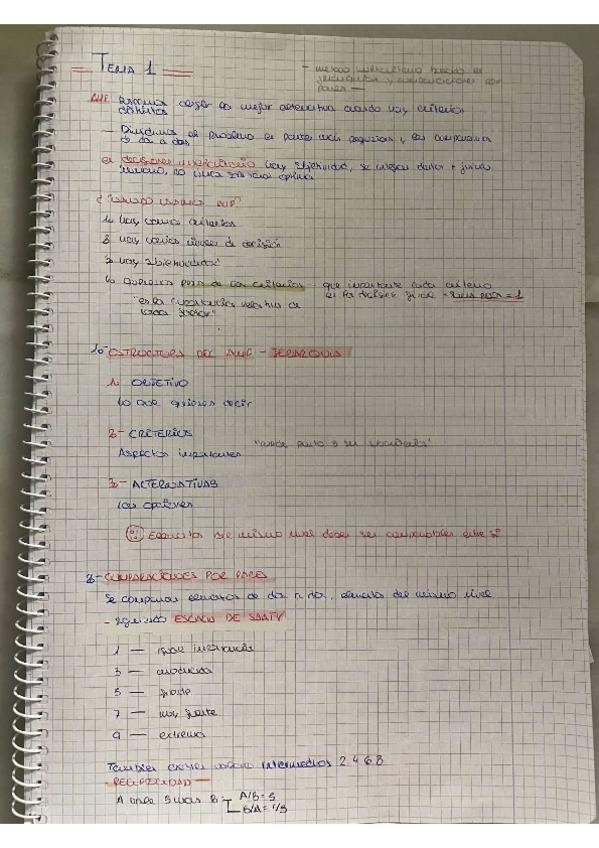 TEMA 1
- metodo multicriterio basado en
jerarquias y comparaciones por
pares
AHP. Escoger mejor alternativa cuando hay criterios
distintos
- Dividimos el problema en partes más pequeñas y las comparamos
de dos a dos
en decisiones multicriterio hay subjetividad, se mezclan datos + juicio
humano, no única solución óptima
¿Cuándo usamos AHP?
1. Hay varios criterios
2. Hay varios niveles de decisión
3. Hay subjetividad
4. Queremos peso de los criterios - que importante cada criterio
en la decisión final - suma pesos = 1
"es la importancia relativa de
cada factor"
1- ESTRUCTURA DEL AHP - JERARQUIA
1. OBJETIVO
Lo que quieres
2- CRITERIOS
Aspectos importantes
3- ALTERNATIVAS
Las opciones
Elementos del mismo nivel deben ser comparables entre sí
2- COMPARACIONES POR PARES
Se comparan elementos de dos a dos, elementos del mismo nivel
- siguiendo ESCALA DE SAATY
1 — igual importancia
3 — moderada
5 — fuerte
7 — muy fuerte
9 — extrema
También existen valores intermedios 2,4,6,8
RECIPROCIDAD
A/B = 5
B/A = 1/5